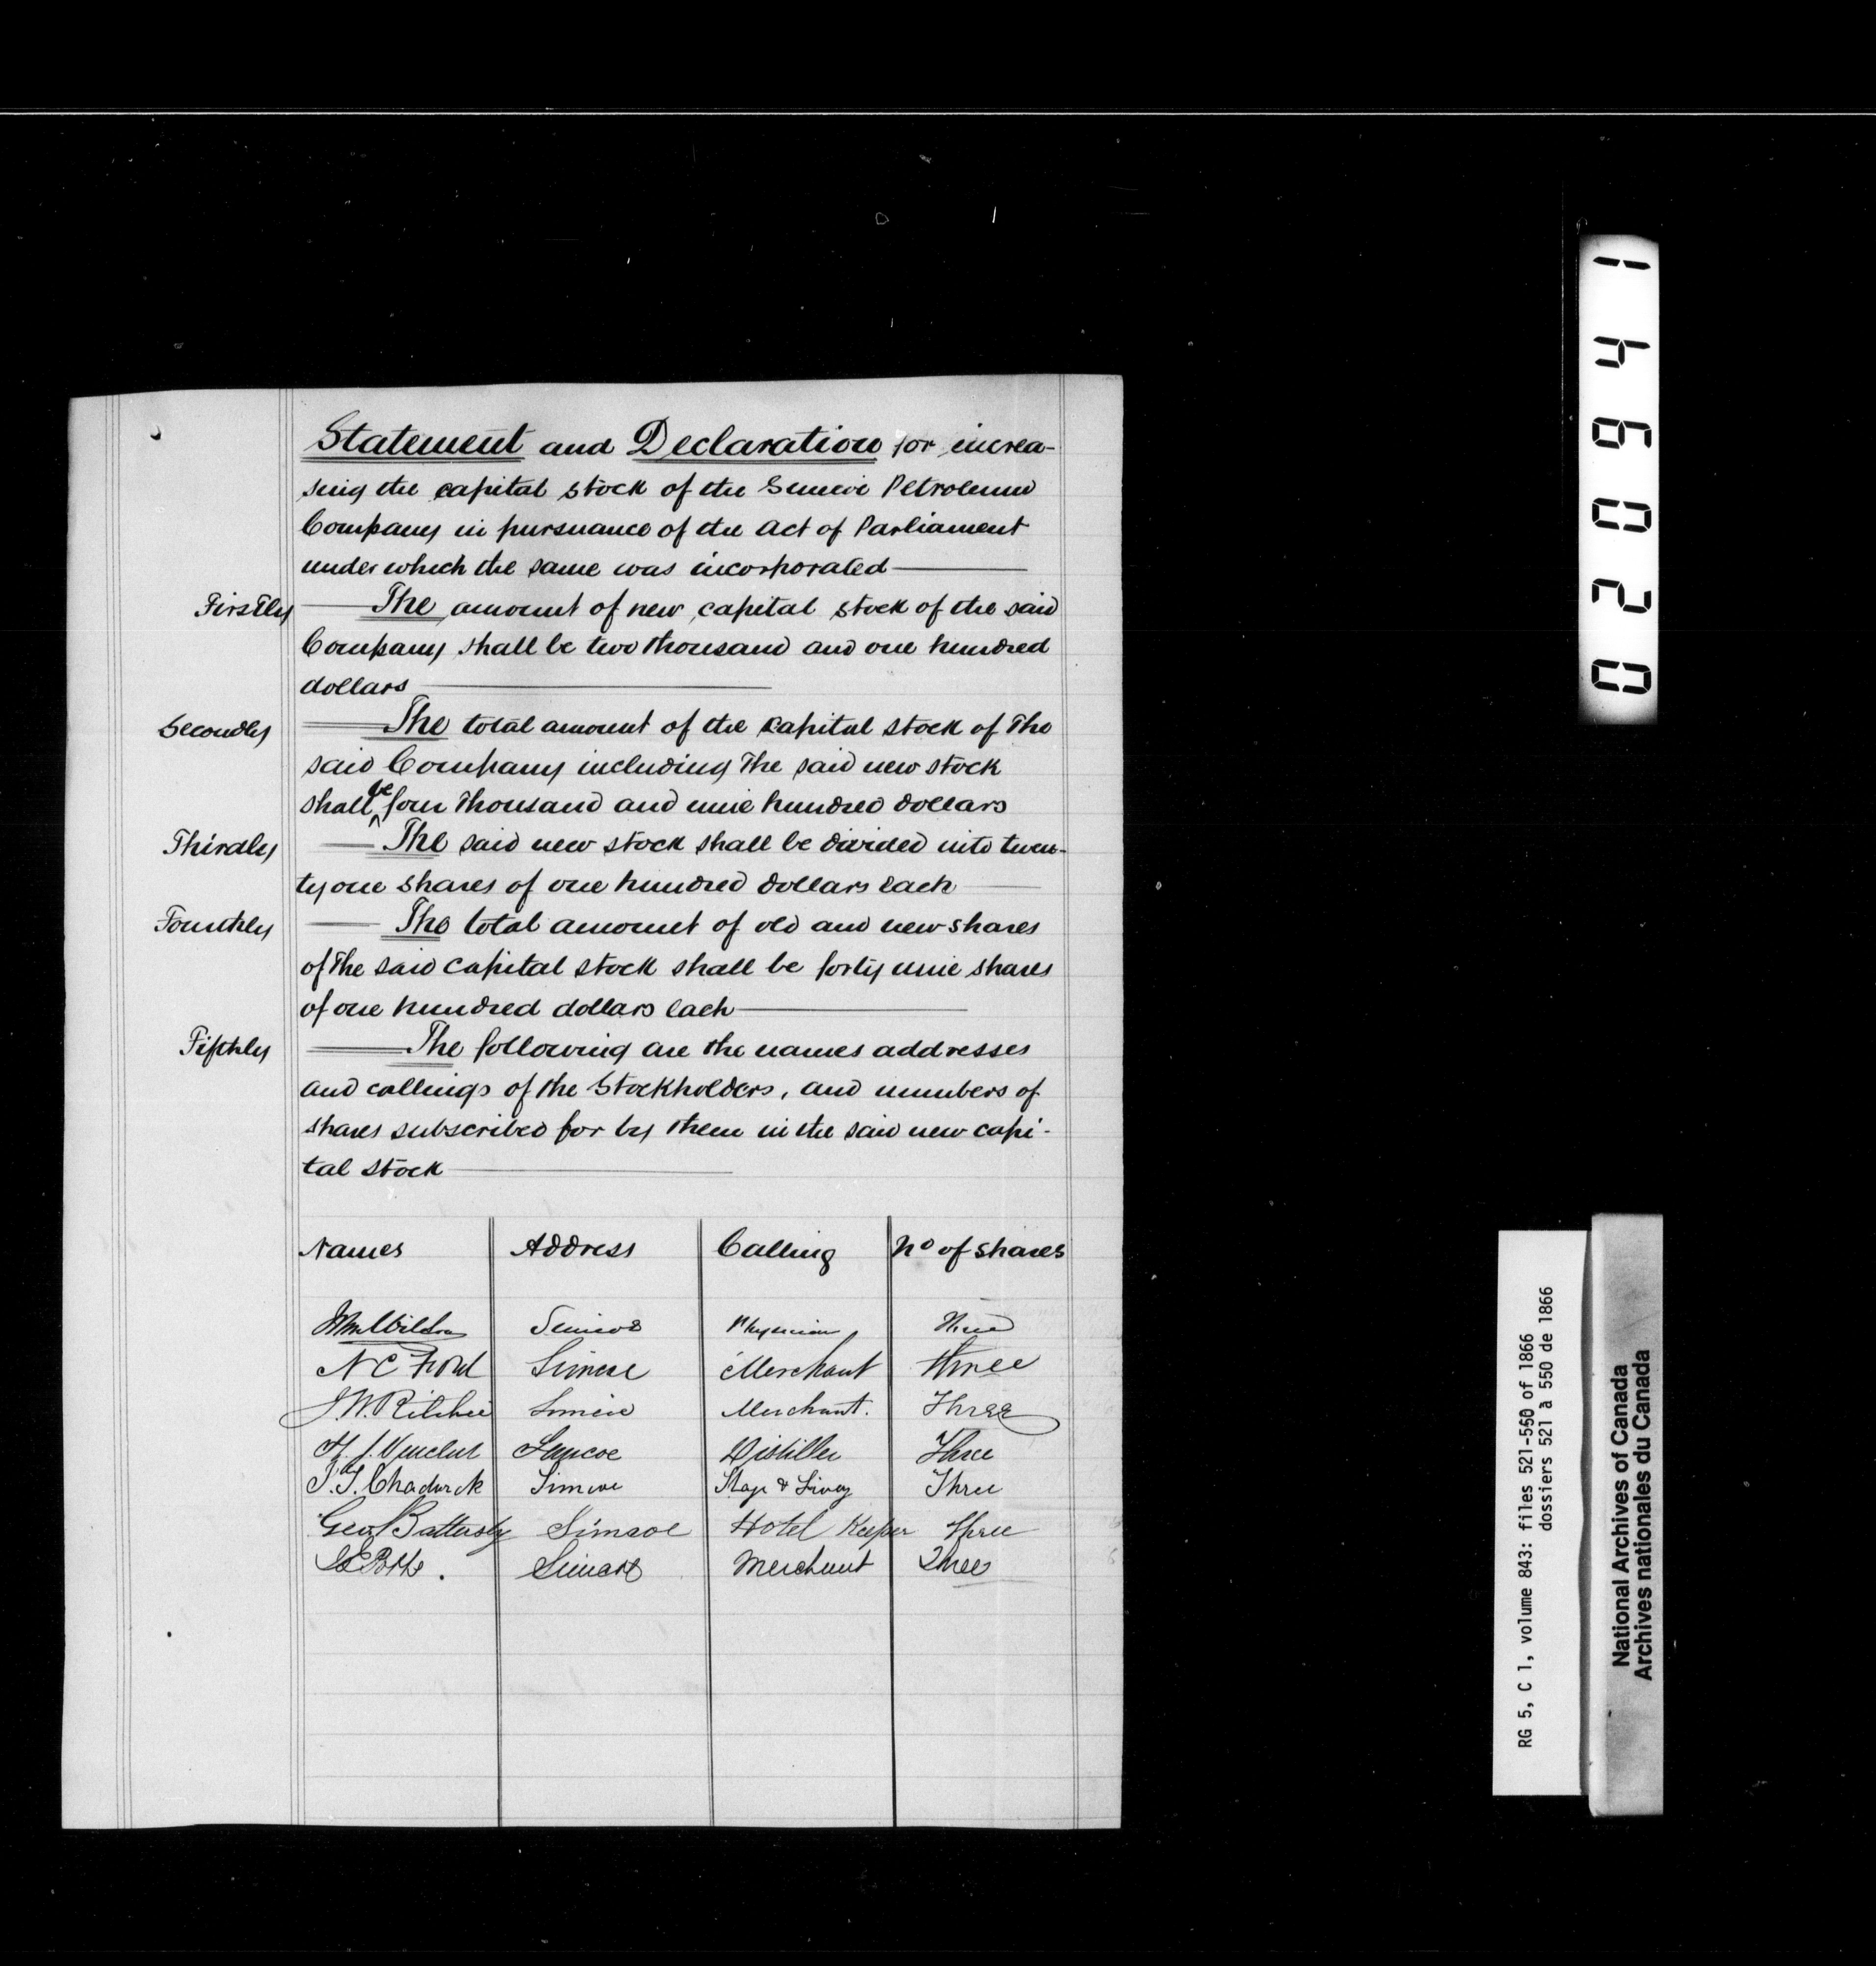 Statement and Declaration for increa-
sing the capital stock of the Simcoe Petroleum
Company in pursuance of the Act of Parliament
under which the same was incorporated
Firstly The amount of new capital stock of the said
Company shall be two thousand and one hundred
dollars
Secondly The total amount of the capital stock of The
said Company including The said new stock
shall be four Thousand and nine hundred dollars
Thirdly The said new stock shall be divided into twen-
ty one shares of one hundred dollars each
Fourthly The total amount of old and new shares
of the said capital stock shall be forty nine shares
of one hundred dollars each
Fifthly The following are the names addresses
and callings of the Stockholders, and numbers of
shares subscribed for by them in the said new capi-
tal stock
Names Address Calling No of shares
Simcoe Physician Three
N C Ford Simcoe Merchant three
J. W. Ritchie Simcoe Merchant. Three
Simcoe Distiller Three
Chadwick Simcoe Stage & Livery Three
Geo Battersby Simcoe Hotel Keeper Three
Simcoe Merchant Three
020641
RG 5, C 1, volume 843: files 521-550 of 1866
dossiers 521 à 550 de 1866
National Archives of Canada
Archives nationales du Canada